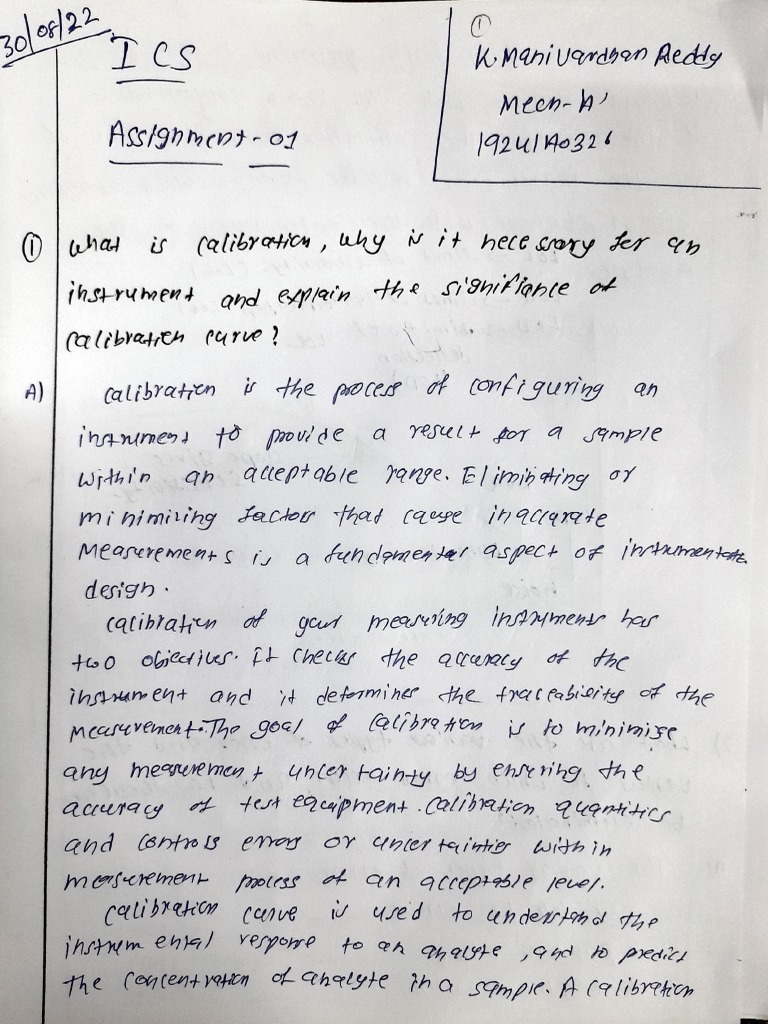 30/08/22
ICS
Assignment-01
①
K. Manivardhan Reddy
Mech-'A'
19241A0326
① what is calibration, why is it necessary for an
instrument and explain the signifiance of
calibration curve?
A) calibration is the process of configuring an
instrument to provide a result for a sample
within an acceptable range. Eliminating or
minimizing factors that cause inaccurate
measurements is a fundamental aspect of
design.
calibration of your measuring instruments has
two objectives. It checks the accuracy of the
instrument and it determines the traceability of the
measurement. The goal of calibration is to minimise
any measurement uncertainty by ensuring the
accuracy of test equipment. calibration quantities
and controls errors or uncertainties within
measurement process of an acceptable level.
calibration curve is used to understand the
instrumental response to an analyte, and to predict
the concentration of analyte in a sample. A calibration